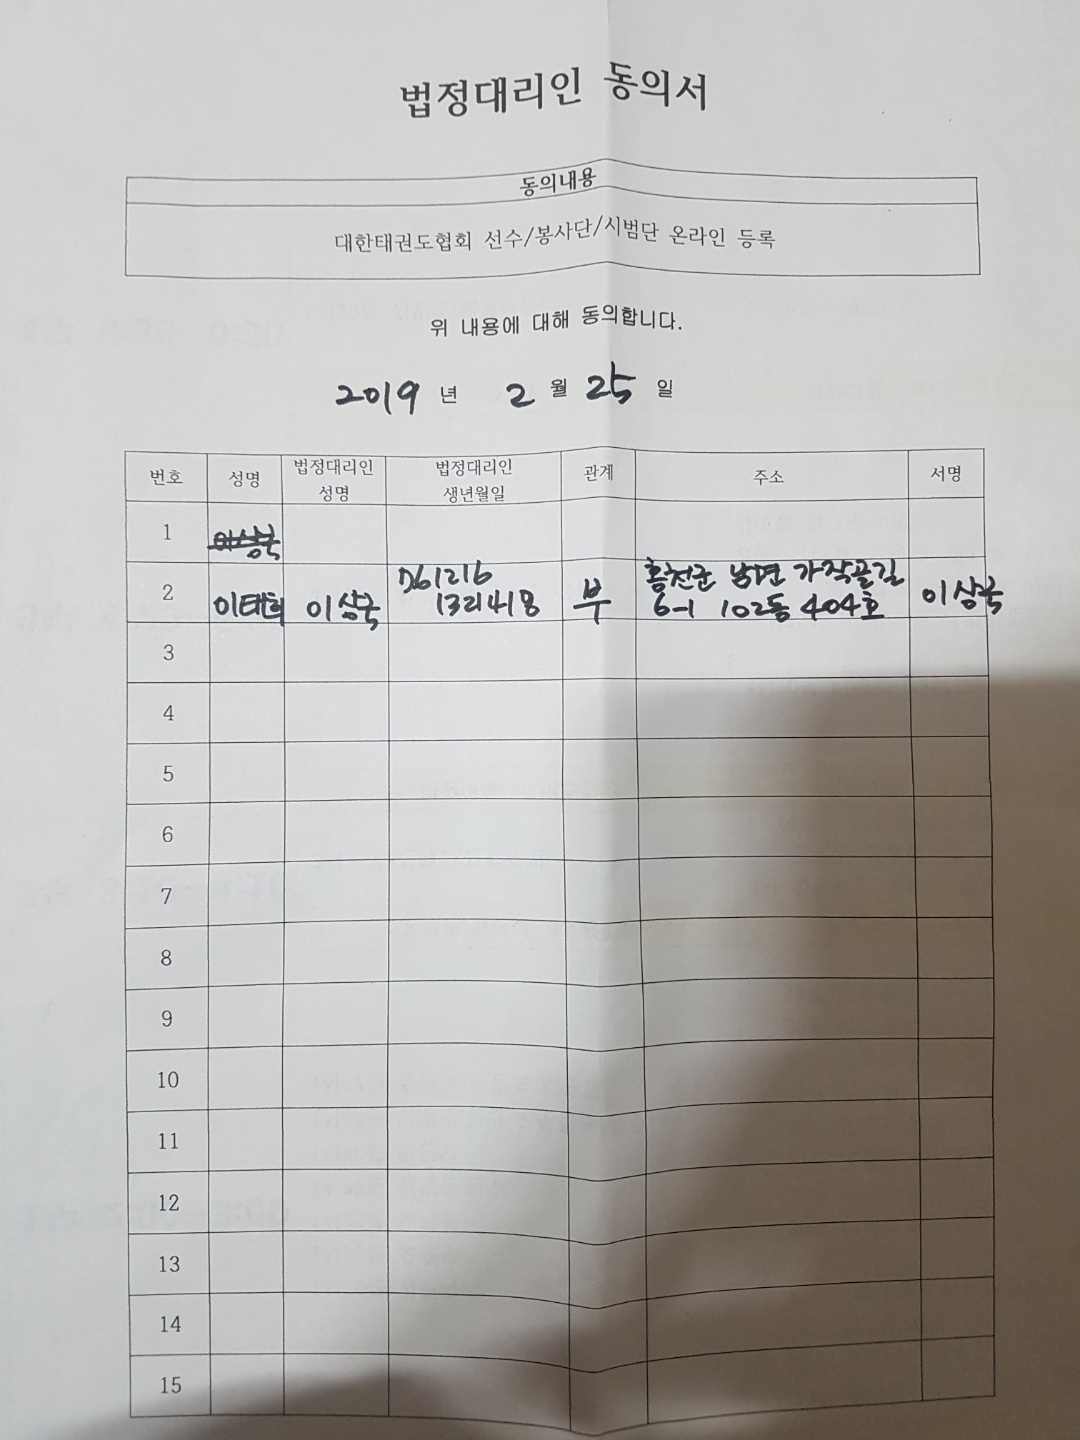 법정대리인 동의서
동의내용
대한태권도협회 선수/봉사단/시범단 온라인 등록
위 내용에 대해 동의합니다.
2019 년 2 월 25 일
번호 성명 법정대리인 성명 법정대리인 생년월일 관계 주소 서명
1 이상국
2 이태희 이상국 부 홍천군 남면 가작골길
6-1 102동 404호 이상국
3
4
5
6
7
8
9
10
11
12
13
14
15